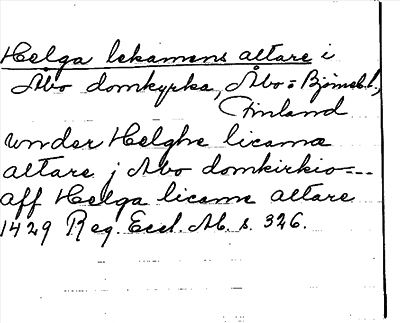 Helga lekamens altare i
Åbo domkyrka, Åbo = Björneb.l.,
Finland
under Helghe licama
altare j Abo domkirkio---
aff Helga licame altare
1429 Reg. Eccl. Ab. s. 326.